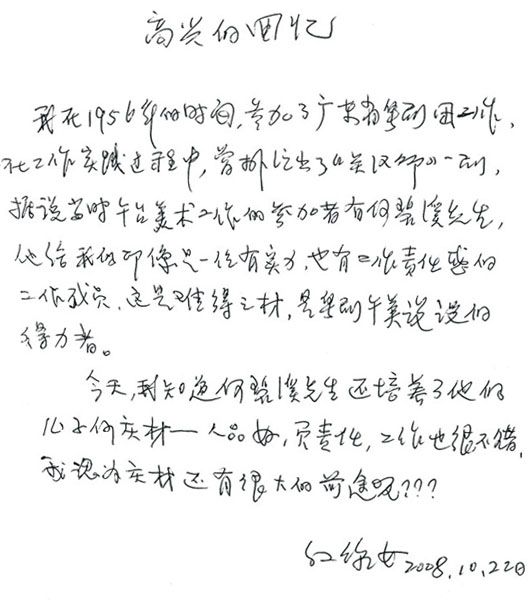 高兴的回忆
我在1956年的时间,参加了广东省粤剧团工作,
在工作实践过程中,曾排演出了《关汉卿》一剧,
据说当时午台美术工作的参加者有何碧溪先生,
他给我的印像是一位有实力,也有工作责任感的
工作成员,这是难得之材,是粤剧午美说设的
得力者。
今天,我知道何碧溪先生还培养了他的
儿子何实材一人品好,负责任,工作也很不错,
我认为实材还有很大的前途呢???
红线女 2008.10.22日